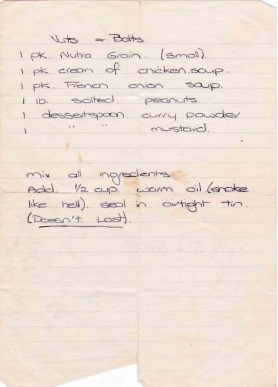 Nuts & Bolts.
1 pk. Nutra Grain. (small).
1 pk cream of chicken soup.
1 pk. French onion soup.
1 lb. salted peanuts.
1 dessertspoon curry powder
1 " " mustard.
mix all ingredients.
Add 1/2 cup warm oil (shake
like hell). seal in airtight tin.
(Doesn't Last).